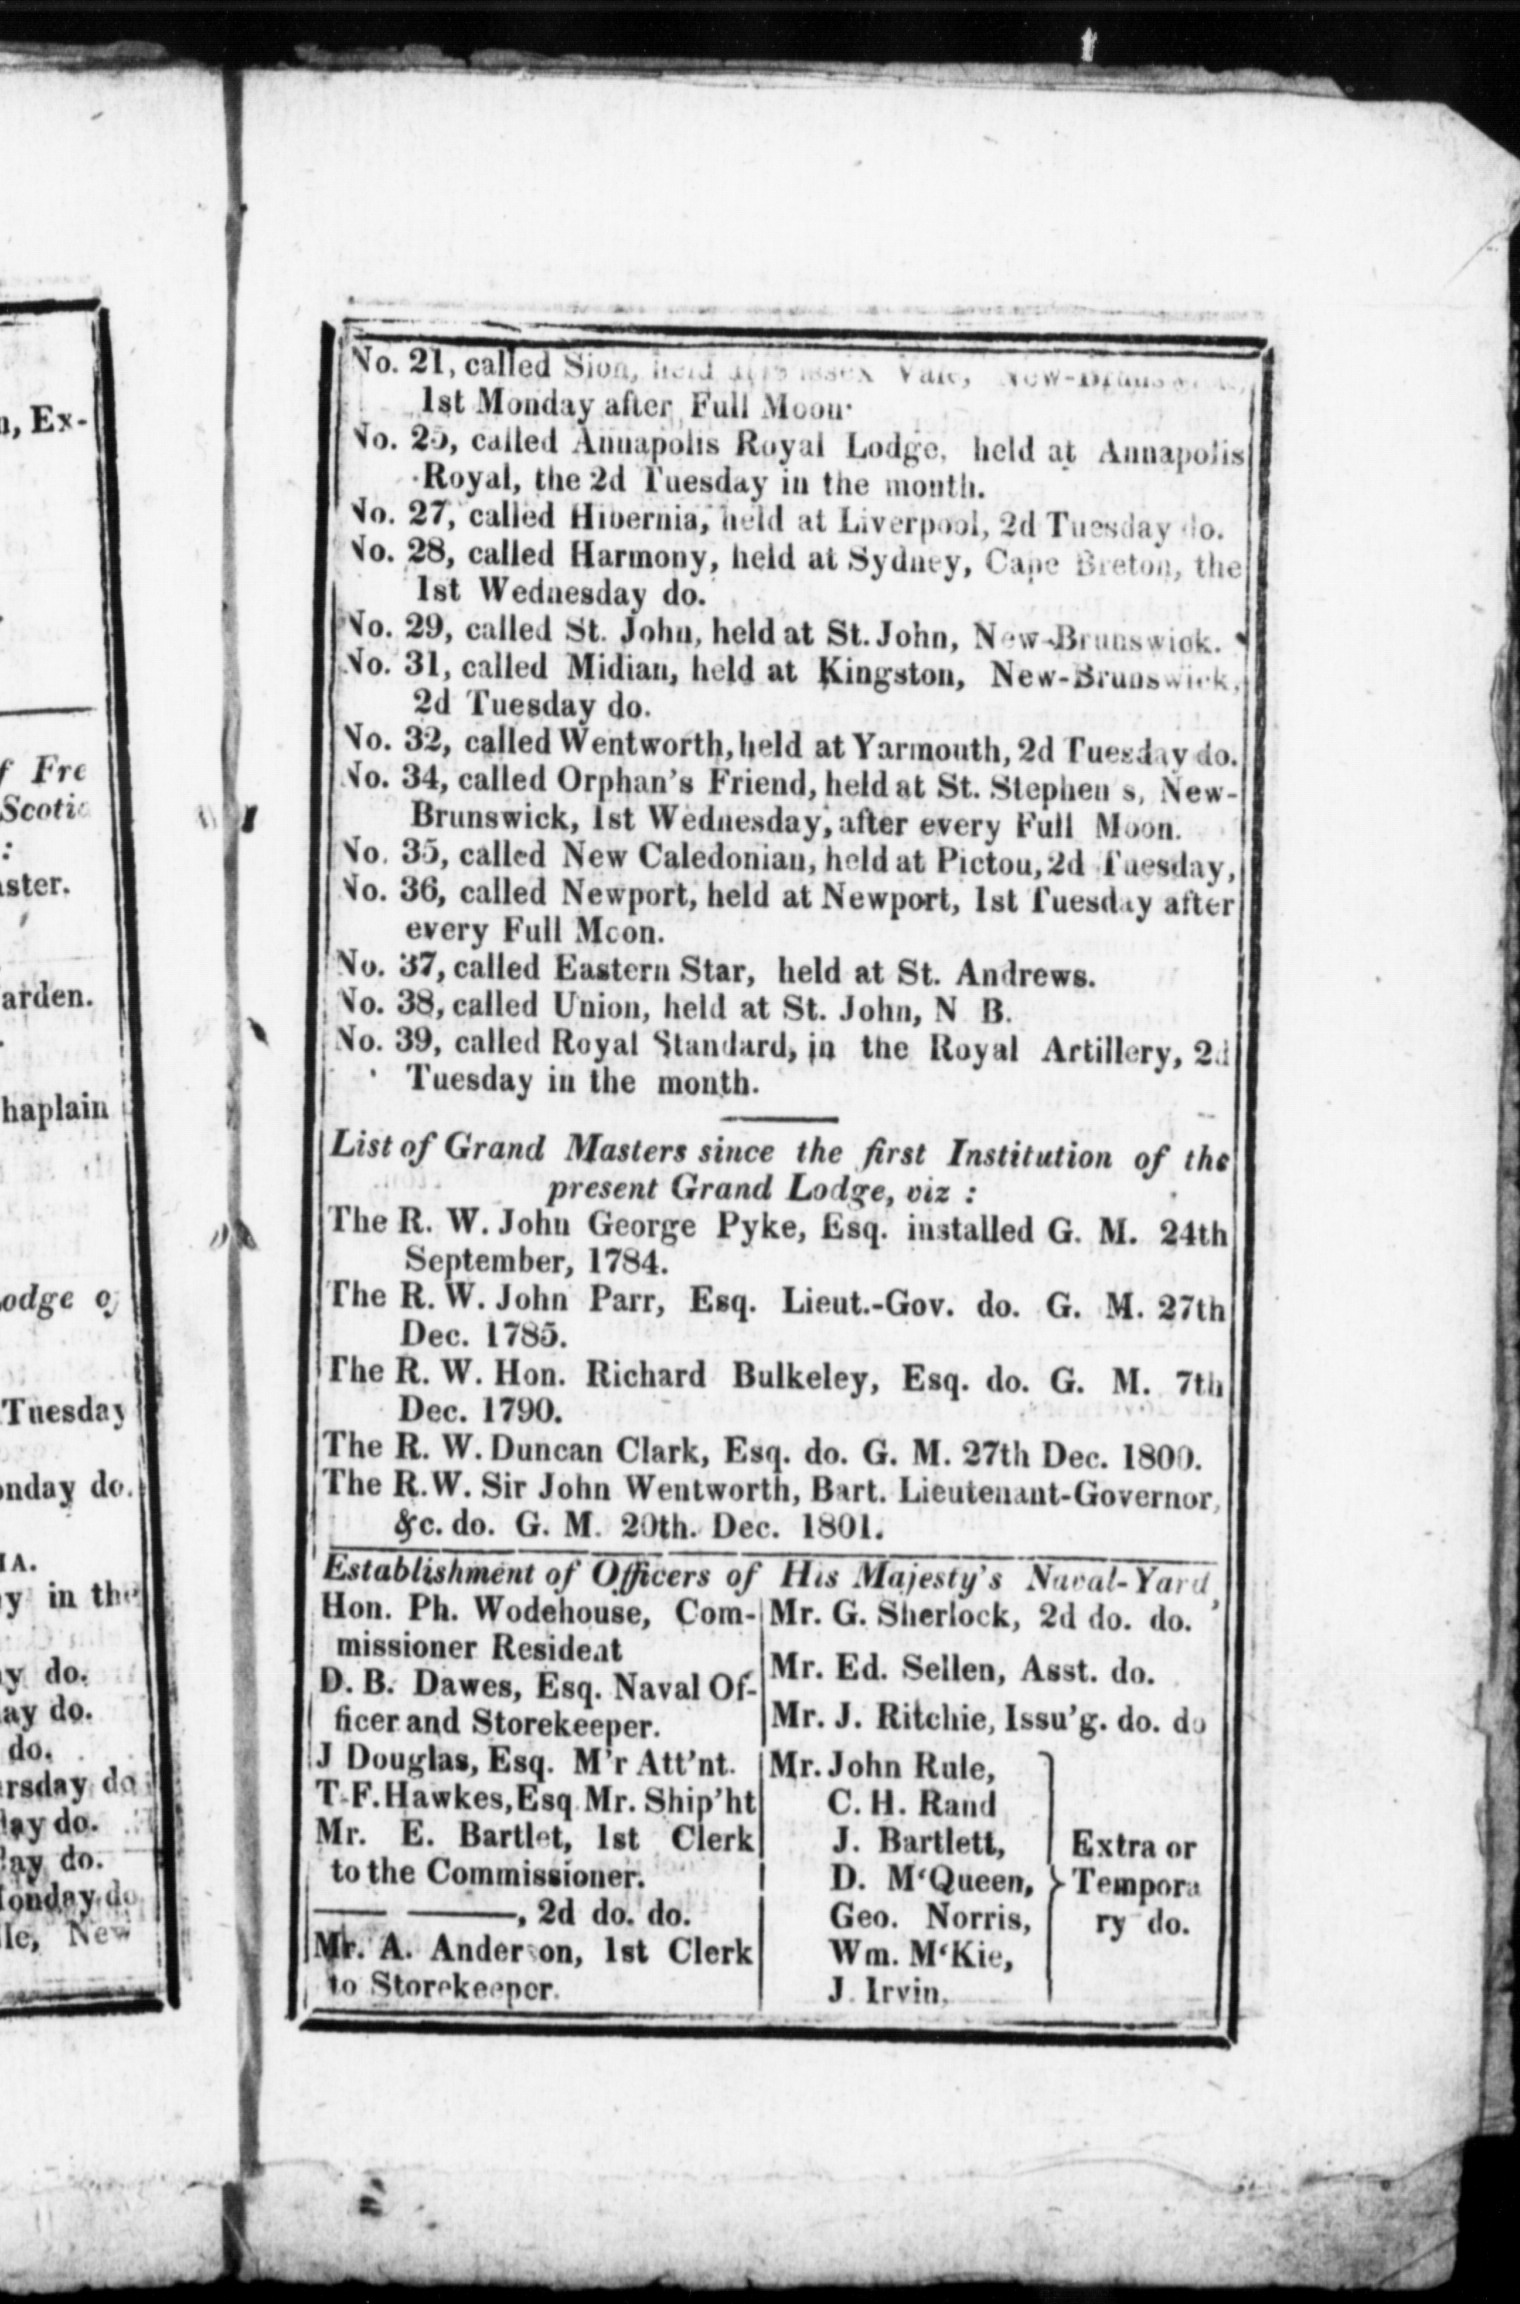 n, Ex-
f Fre
Scotic
:
aster.
arden.
haplain
odge o
Tuesday
onday do.
IA.
y in the
ay do.
ay do.
do.
ersday do
day do.
day do.
Monday do
le, New
No. 21, called Sion, held at Sussex Vale, New-Brunswick,
1st Monday after Full Moon.
No. 25, called Annapolis Royal Lodge, held at Annapolis
Royal, the 2d Tuesday in the month.
No. 27, called Hibernia, held at Liverpool, 2d Tuesday do.
No. 28, called Harmony, held at Sydney, Cape Breton, the
1st Wednesday do.
No. 29, called St. John, held at St. John, New-Brunswick.
No. 31, called Midian, held at Kingston, New-Brunswick,
2d Tuesday do.
No. 32, called Wentworth, held at Yarmouth, 2d Tuesday do.
No. 34, called Orphan's Friend, held at St. Stephen s, New-
Brunswick, 1st Wednesday, after every Full Moon.
No. 35, called New Caledonian, held at Pictou, 2d Tuesday,
No. 36, called Newport, held at Newport, 1st Tuesday after
every Full Moon.
No. 37, called Eastern Star, held at St. Andrews.
No. 38, called Union, held at St. John, N B.
No. 39, called Royal Standard, in the Royal Artillery, 2d
Tuesday in the month.
List of Grand Masters since the first Institution of the
present Grand Lodge, viz :
The R. W. John George Pyke, Esq. installed G. M. 24th
September, 1784.
The R. W. John Parr, Esq. Lieut.-Gov. do. G. M. 27th
Dec. 1785.
The R. W. Hon. Richard Bulkeley, Esq. do. G. M. 7th
Dec. 1790.
The R. W. Duncan Clark, Esq. do. G. M. 27th Dec. 1800.
The R.W. Sir John Wentworth, Bart. Lieutenant-Governor,
&c. do. G. M. 20th. Dec. 1801.
Establishment of Officers of His Majesty's Naval-Yard,
Hon. Ph. Wodehouse, Com-
missioner Resident
D. B. Dawes, Esq. Naval Of-
ficer and Storekeeper.
J Douglas, Esq. M'r Att'nt.
T. F. Hawkes, Esq Mr. Ship'ht
Mr. E. Bartlet, 1st Clerk
to the Commissioner.
—— ———, 2d do. do.
Mr. A. Anderson, 1st Clerk
to Storekeeper.
Mr. G. Sherlock, 2d do. do.
Mr. Ed. Sellen, Asst. do.
Mr. J. Ritchie, Issu'g. do. do
Mr. John Rule,
C. H. Rand
J. Bartlett,
D. M'Queen,
Geo. Norris,
Wm. M'Kie,
J. Irvin.
Extra or
Tempora
ry do.